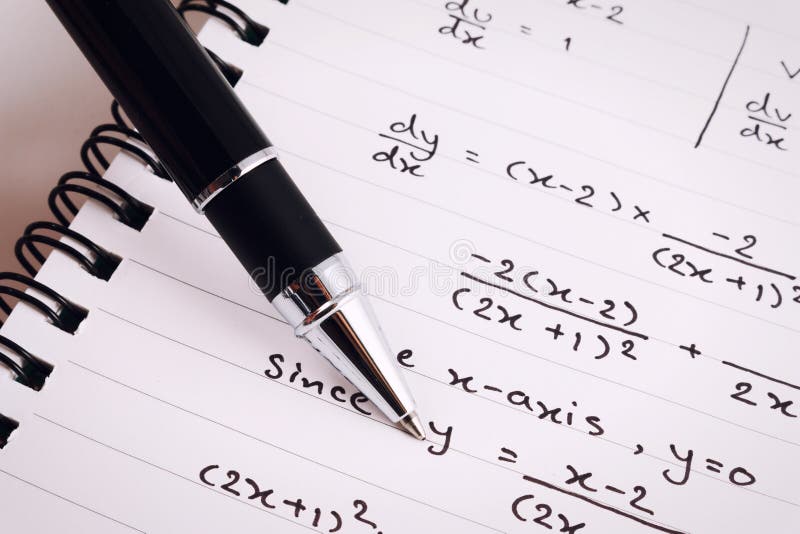 x-2
du/dx = 1
dv/dx
dy/dx = (x-2) × -2/(2x+1)²
-2(x-2)/(2x+1)² + /2x
since e x-axis, y=0
y = x-2/(2x
(2x+1)²
dreamstime